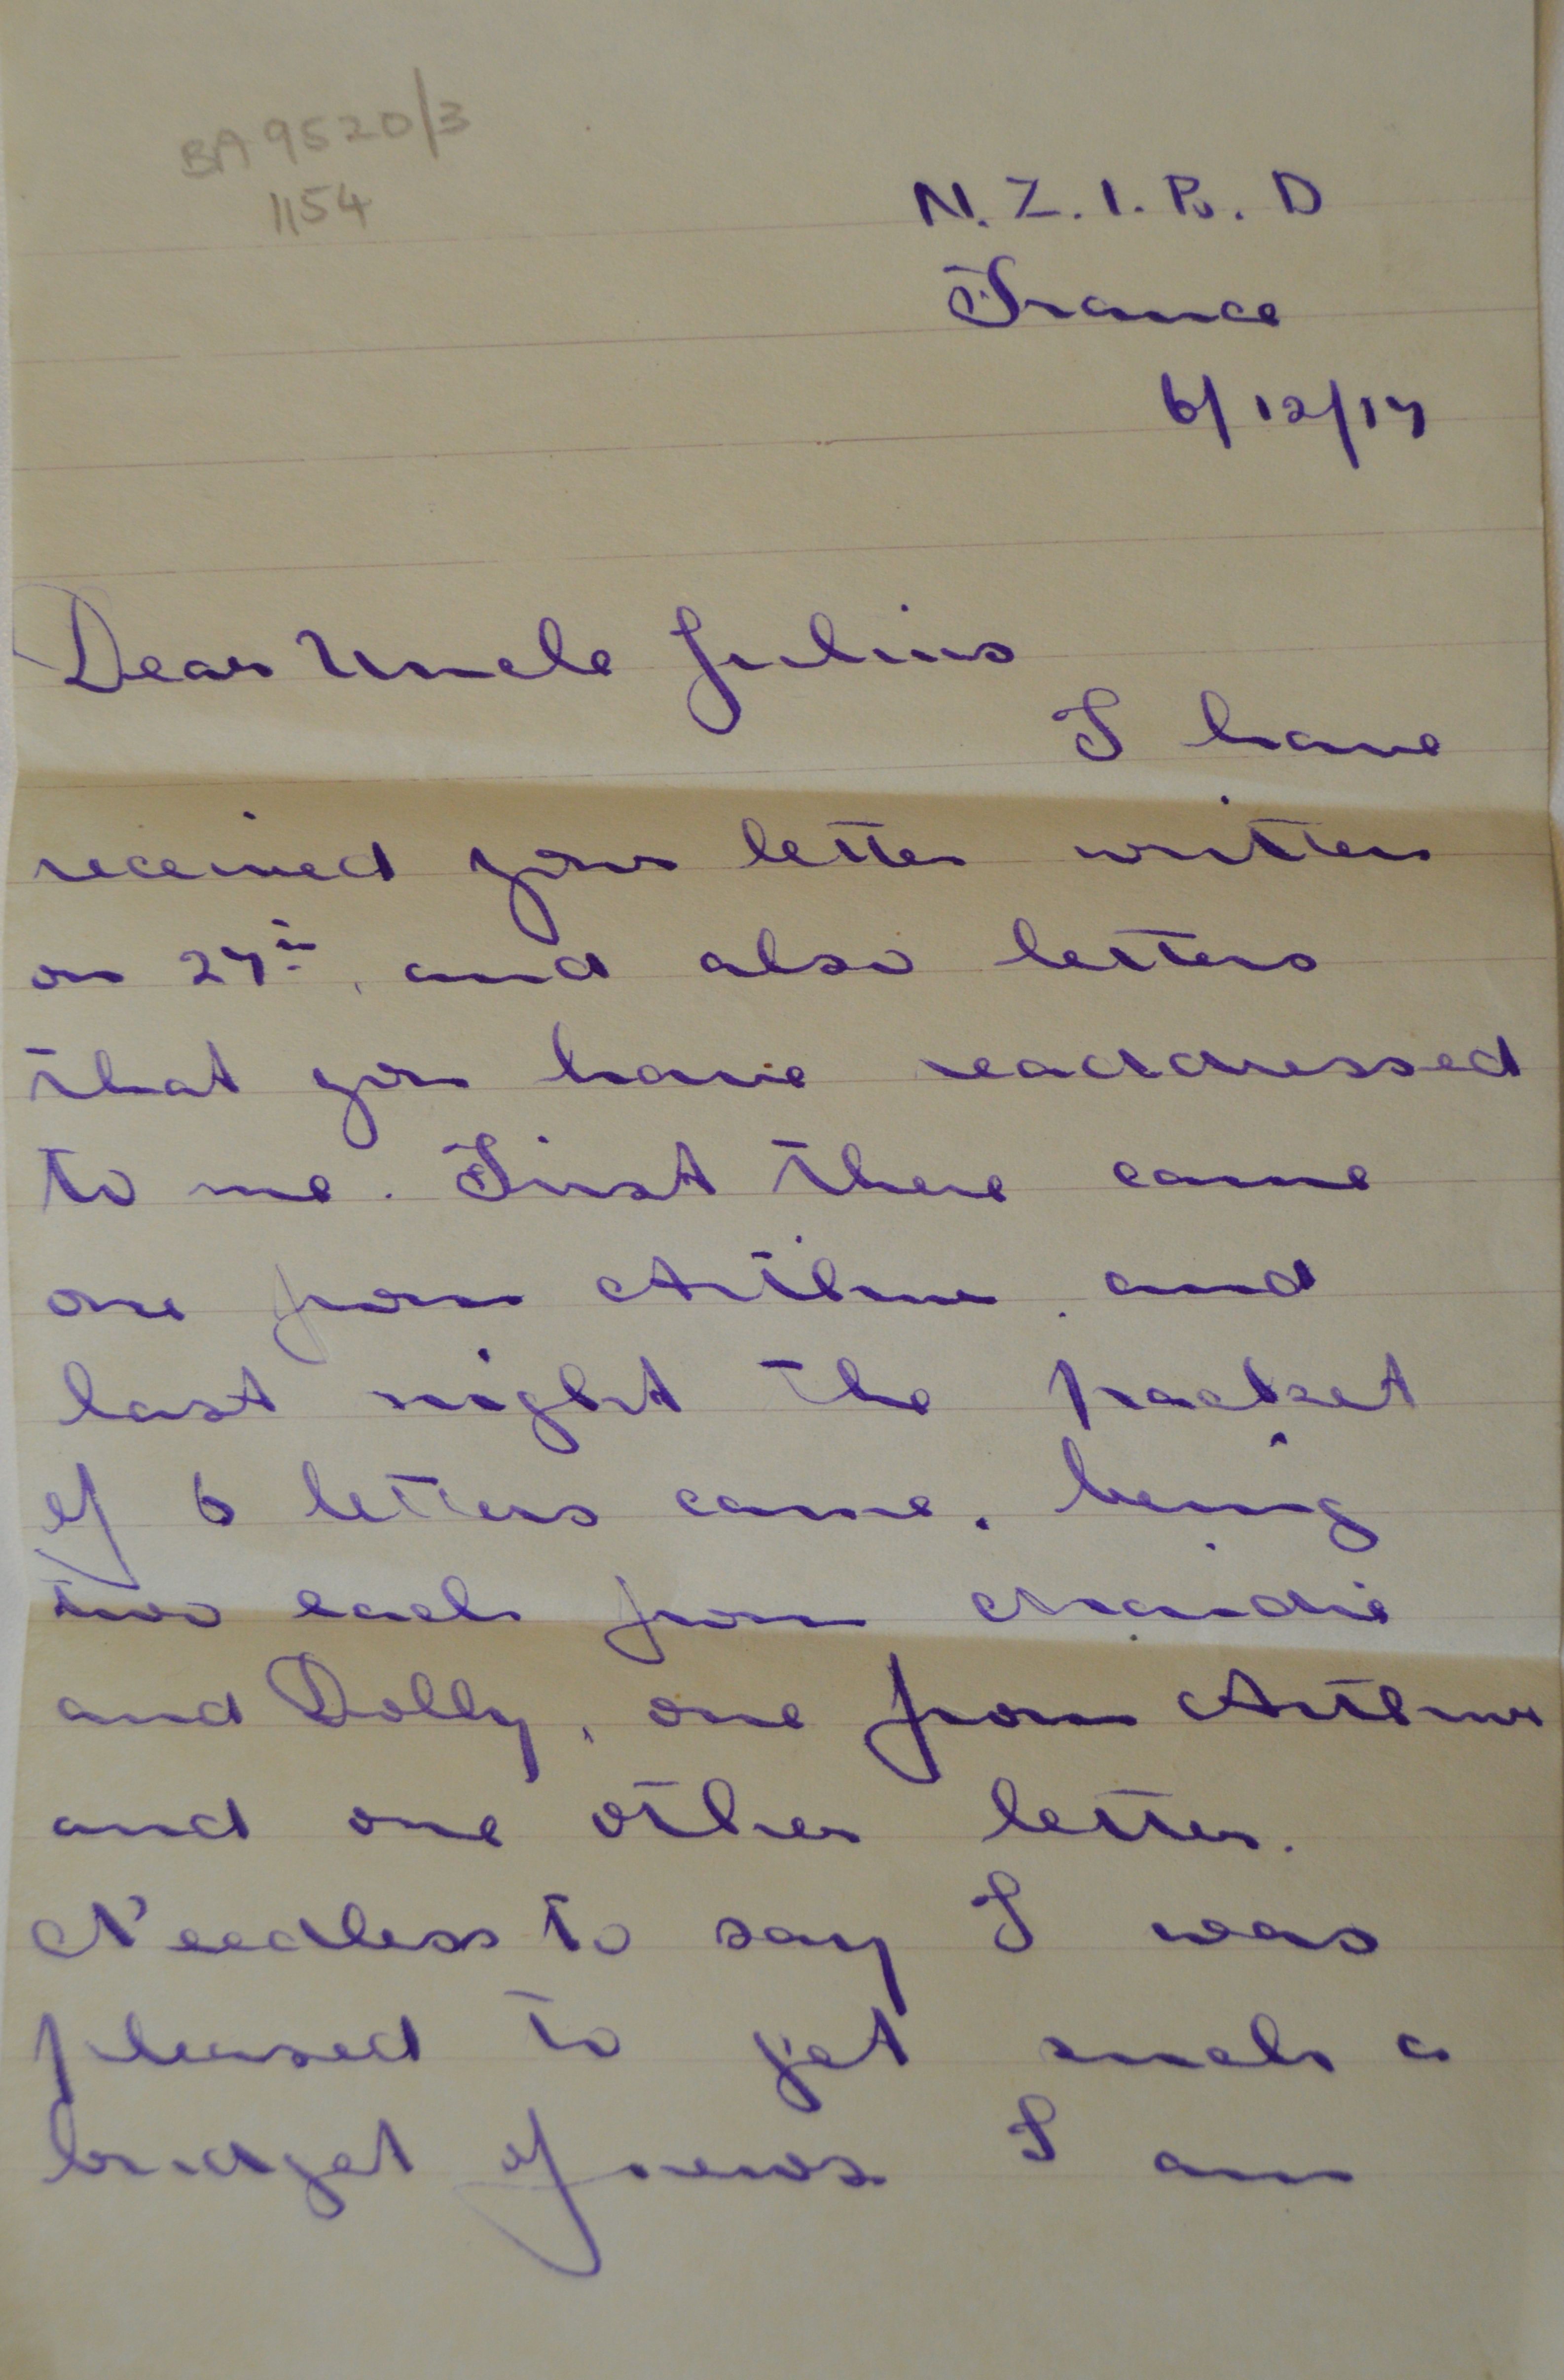 BA 9520/3
1154
N. Z. I. B. D
France
6/12/17
Dear Uncle Julius
I have
received your letter written
on 27th, and also letters
that you have readdressed
to me. First there came
one from Arthur, and
last night the packet
of 6 letters came, being
two each from Maidie
and Dolly, one from Arthur
and one other letter.
Needless to say I was
pleased to get such a
budget of news I am